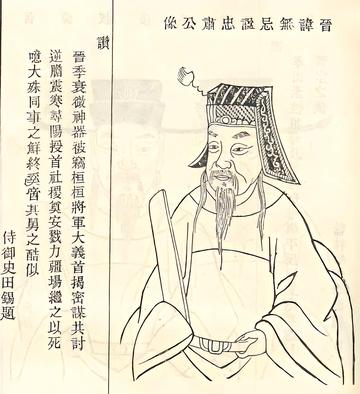 晉諱無忌諡忠肅公像
讚
晉季衰微神器被竊桓桓將軍大義首揭密謀共討
逆膽震寒尋陽授首社稷奠安戮力疆場繼之以死
噫大殊同事之鮮終奚啻其舅之酷似
侍御史田錫題